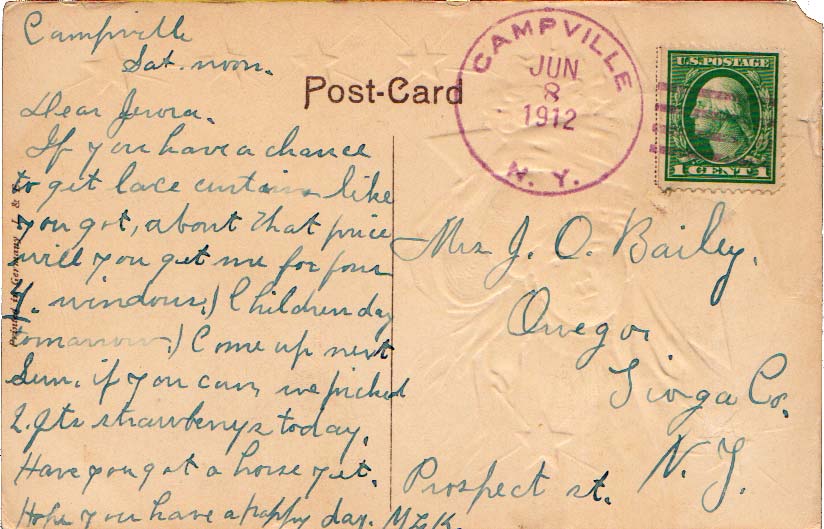 Campville
Sat. noon.
Dear
If you have a chance
to get lace curtains like
you got, about that price
will you get me for four
4. windows.) Children day
tomarrow.) Come up next
Sun. if you can, we picked
2. qts strawberrys today.
Have you got a horse yet.
Hope you have a happy day. M.L.K.
Post-Card
CAMPVILLE
JUN
8
1912
N. Y.
U.S. POSTAGE
1 CENT 1
Mrs J. O. Bailey.
Owego,
Tioga Co.
N. Y.
Prospect st.
Printed in Germany